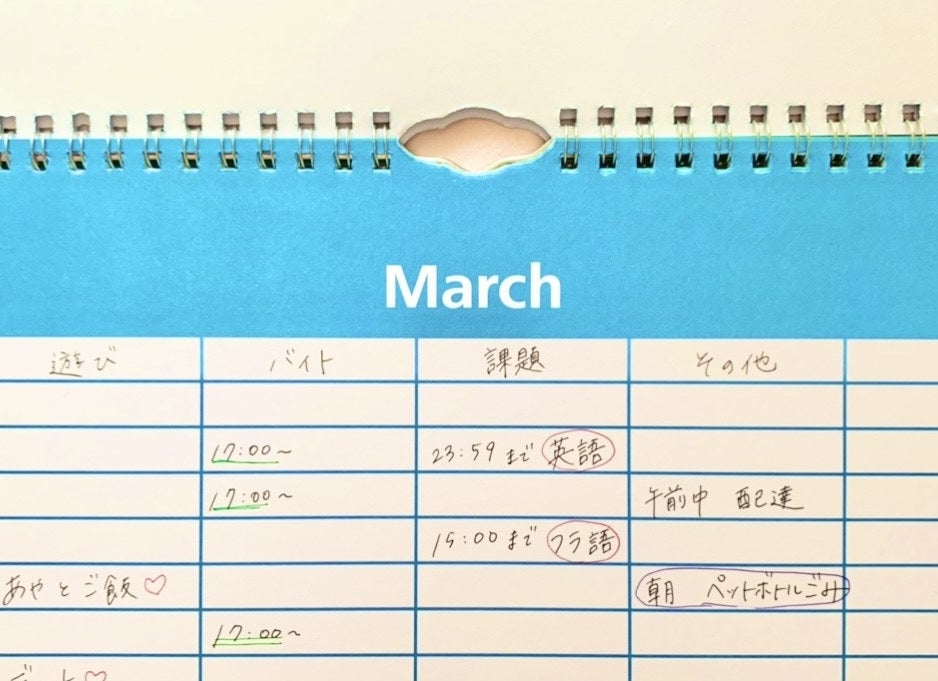 March
遊び バイト 課題 その他
17:00~ 23:59まで 英語
17:00~ 午前中 配達
15:00まで フラ語
あやとご飯♡ 朝 ペットボトルごみ
17:00~